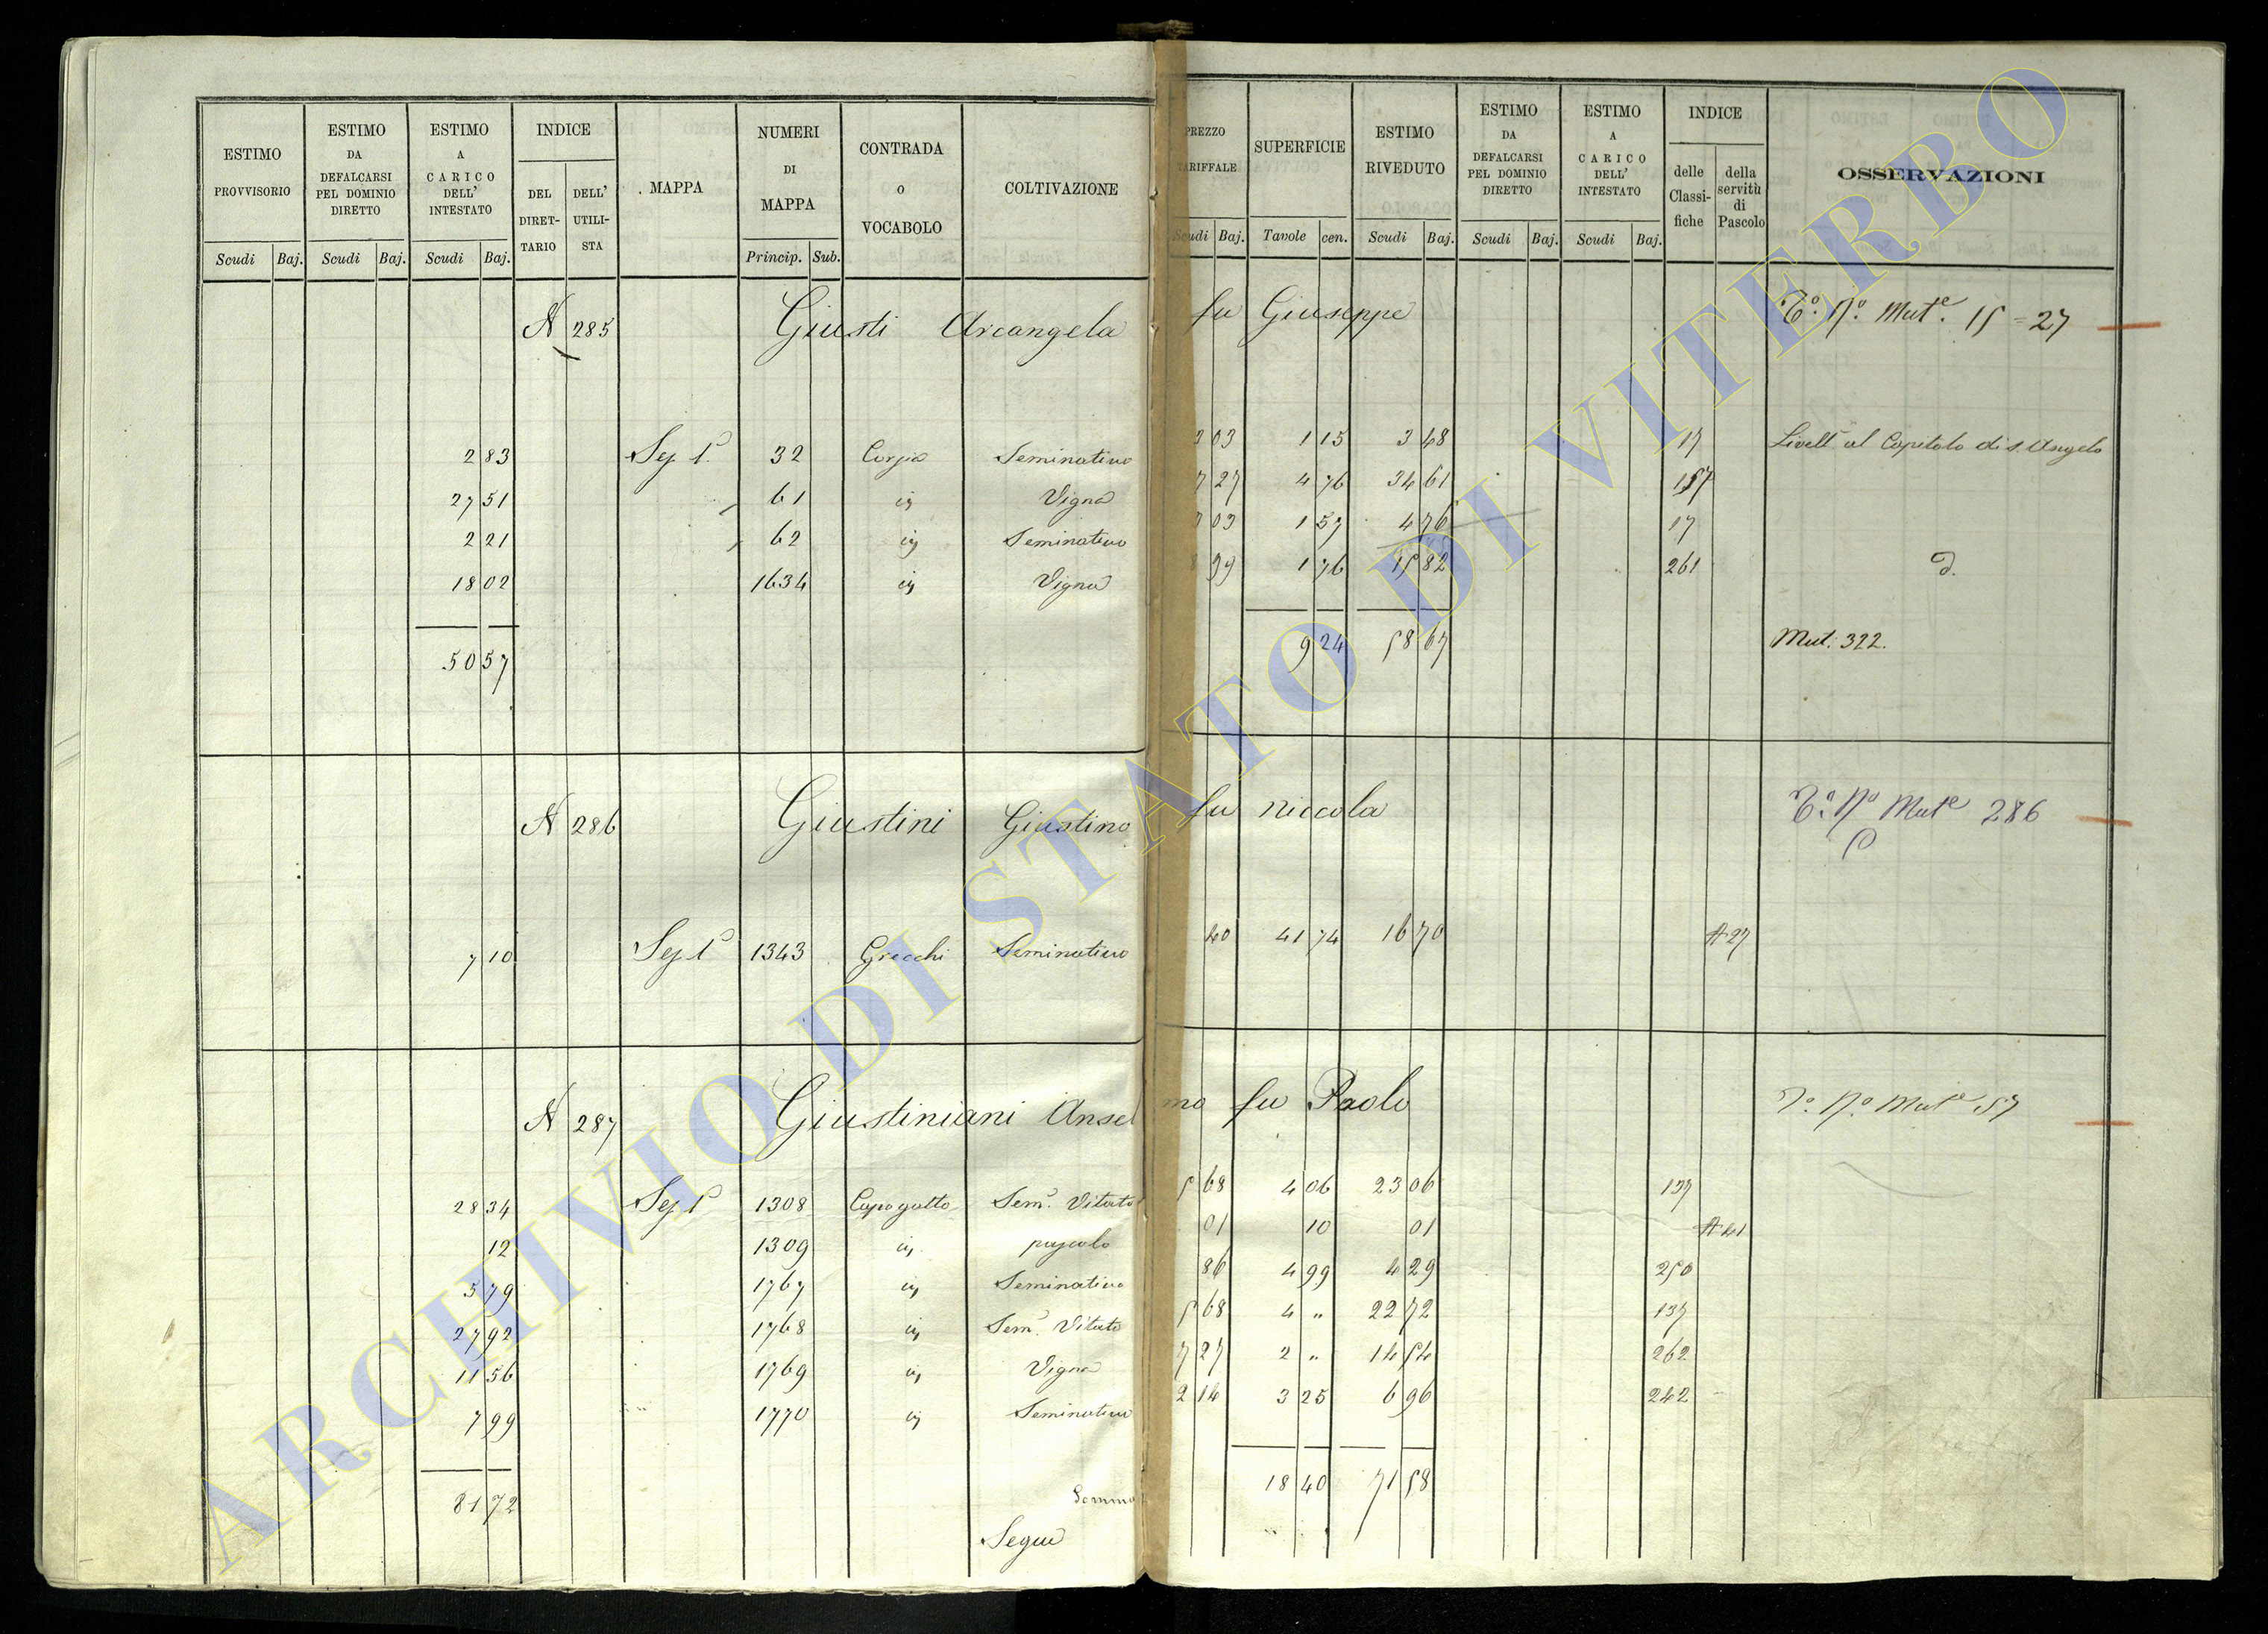 ESTIMO PROVVISORIO | ESTIMO DA DEFALCARSI PEL DOMINIO DIRETTO | ESTIMO A CARICO DELL' INTESTATO | INDICE | MAPPA | NUMERI DI MAPPA | CONTRADA O VOCABOLO | COLTIVAZIONE | PREZZO TARIFFALE | SUPERFICIE | ESTIMO RIVEDUTO | ESTIMO DA DEFALCARSI PEL DOMINIO DIRETTO | ESTIMO A CARICO DELL' INTESTATO | INDICE | OSSERVAZIONI
DEL DIRETTARIO | DELL' UTILISTA | delle Classifiche | della servitù di Pascolo
Scudi | Baj. | Scudi | Baj. | Scudi | Baj. | Princip. | Sub. | Scudi | Baj. | Tavole | cen. | Scudi | Baj. | Scudi | Baj. | Scudi | Baj.
N 285 Giusti Arcangela fu Giuseppe Tº. Nº. Mutᵉ. 15=27
2 83 | Sez 1ª | 32 | Seminativo | 3 03 | 1 15 | 3 48 | 17 | Livellº al Capitolo di S. Angelo
27 51 | 61 | Vigna | 7 27 | 4 76 | 34 61 | 157
2 21 | 62 | Seminativo | 3 03 | 1 57 | 4 76 | 17
18 02 | 1634 | Vigna | 8 99 | 1 76 | 15 82 | 261 | D.
50 57 | 9 24 | 58 67 | Mut: 322.
N 286 Giustini Giustino fu Niccola Tº. Nº Mutᵉ 286
7 10 | Sez 1ª | 1343 | Grecchi | Seminativo | 40 | 41 74 | 16 70 | A 27
N 287 Giustiniani Anselmo fu Paolo Tº. Nº. Mutᵉ 57
28 34 | Sez 1ª | 1308 | Capogatto | Semº. Vitato | 5 68 | 4 06 | 23 06 | 137
12 | 1309 | pascolo | 01 | 10 | 01 | A 41
5 79 | 1767 | Seminativo | 86 | 4 99 | 4 29 | 250
27 92 | 1768 | Semº. Vitato | 5 68 | 4 " | 22 72 | 137
11 56 | 1769 | Vigna | 7 27 | 2 " | 14 54 | 262
7 99 | 1770 | Seminativo | 2 14 | 3 25 | 6 96 | 242
81 72 | Somma | 18 40 | 71 58
Segue
ARCHIVIO DI STATO DI VITERBO